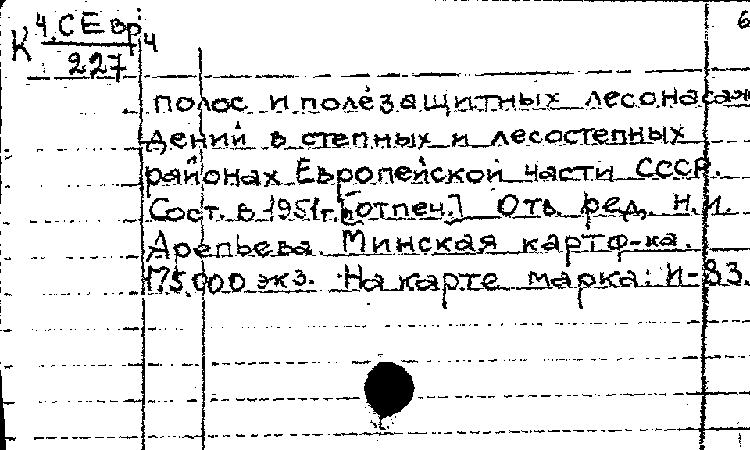 К 4.СЕвр.4
227
6
полос и полезащитных лесонасаж
дений в степных и лесостепных
районах Европейской части СССР.
Сост. в 1951г. [отпеч.] Отв. ред. Н.И.
Арепьева. Минская картф-ка.
175.000 экз. На карте марка: И-83.